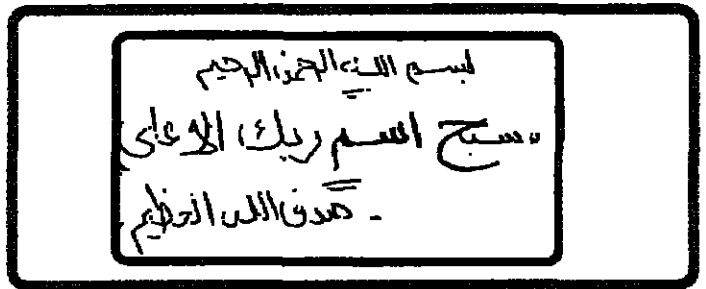 بسم الله الرحمن الرحيم
سبح اسم ربك الاعلى
صدق الله العظيم